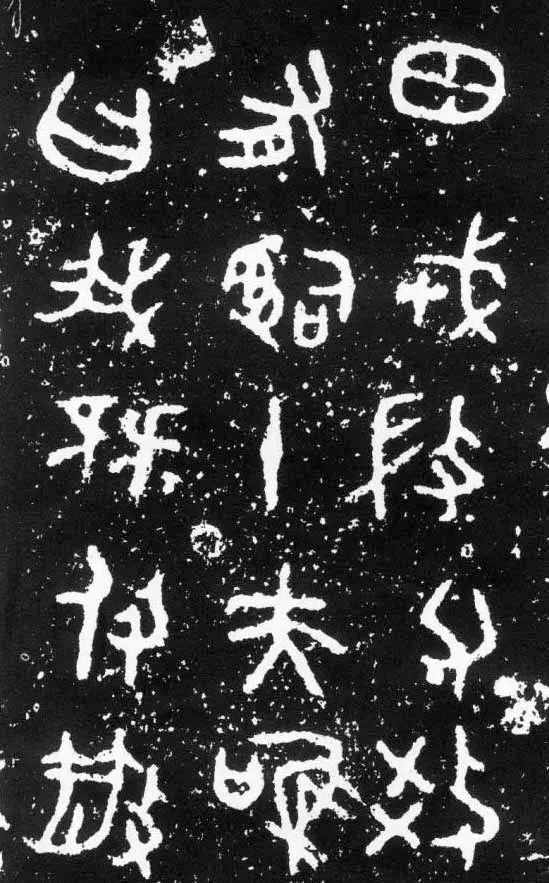 田戎微父教
有司十夫唯
曰我既付散